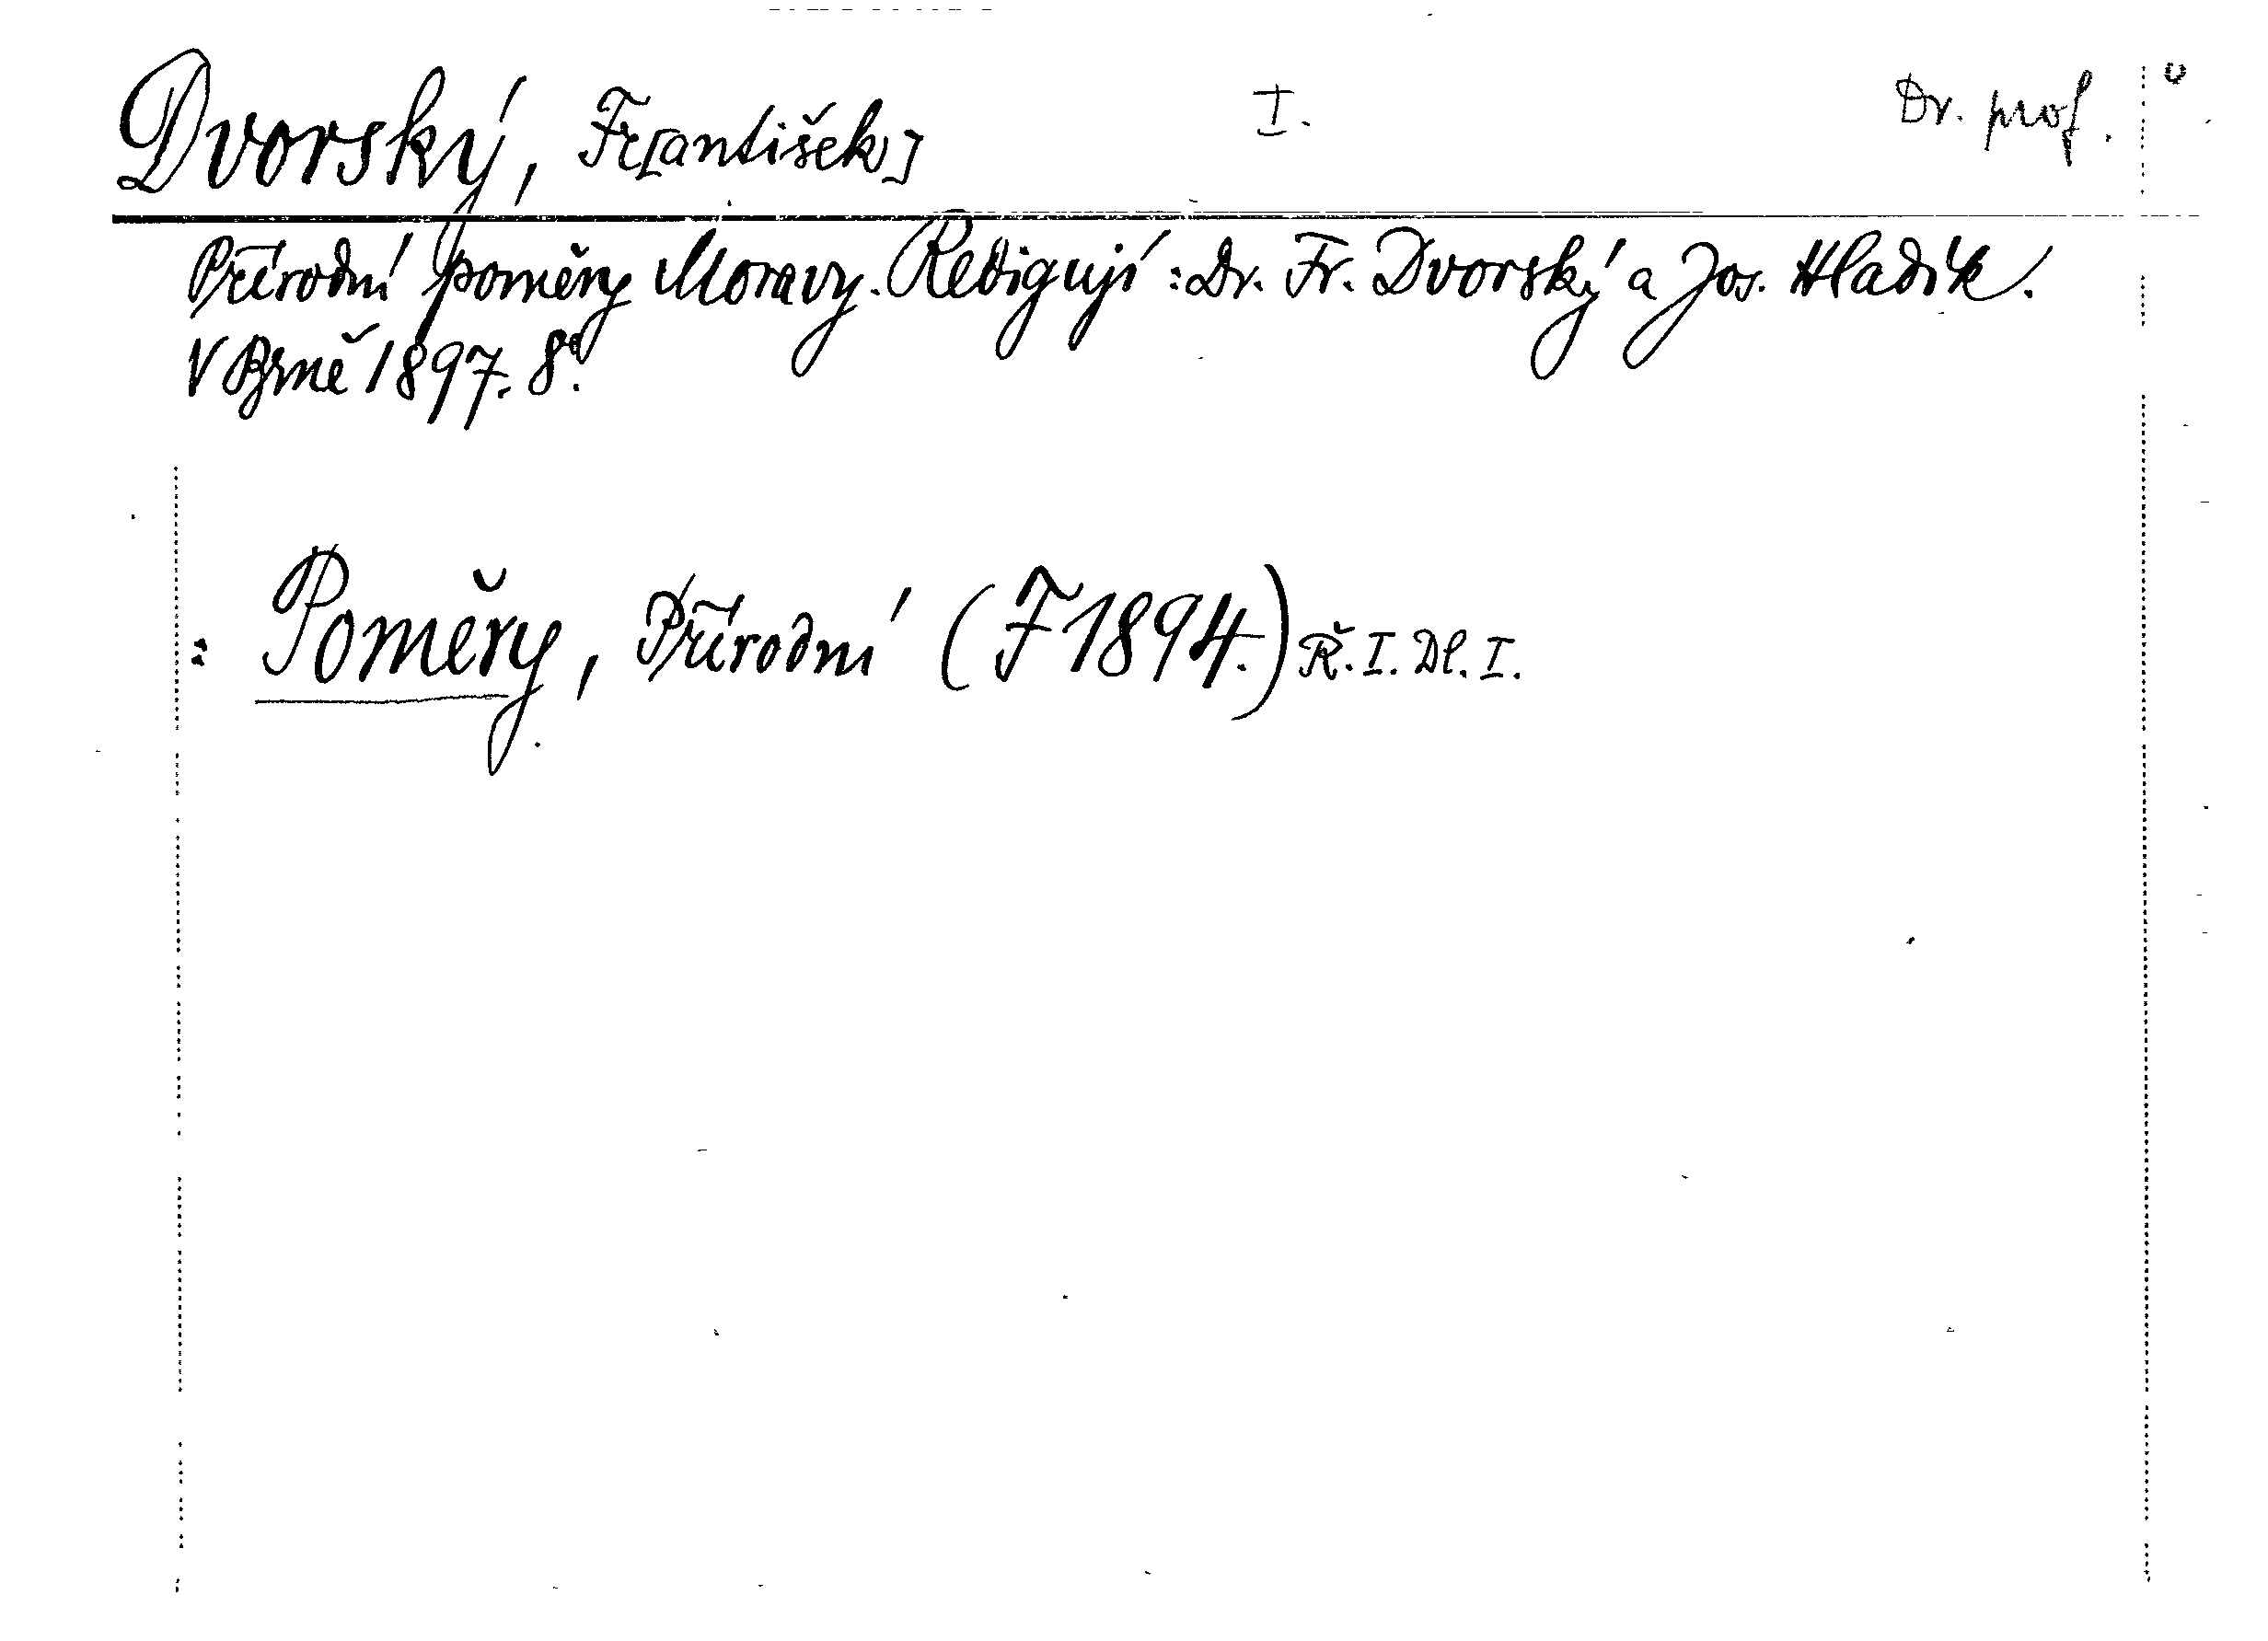 Dvorský, Fr[antišek] I. Dr. prof.
Přírodní poměry Moravy. Redigují: Dr. Fr. Dvorský a Jos. Hladík.
V Brně 1897. 8°.
: Poměry, Přírodní (F 1894.) Ř. I. Dl. I.